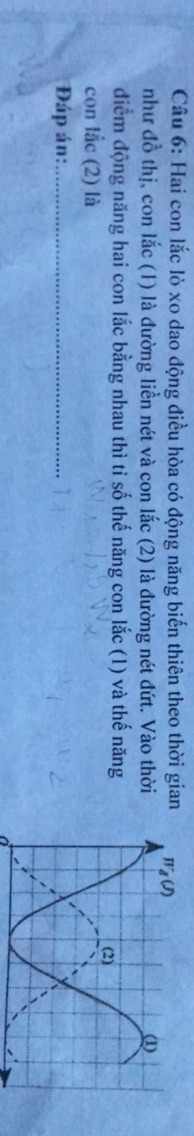 Câu 6: Hai con lắc lò xo dao động điều hòa có động năng biến thiên theo thời gian
như đồ thị, con lắc (1) là đường liền nét và con lắc (2) là đường nét đứt. Vào thời
điểm động năng hai con lắc bằng nhau thì tỉ số thế năng con lắc (1) và thế năng
con lắc (2) là
Đáp án:
W₁ = 1,5 W₂
Wđ (J)
(1)
(2)
O